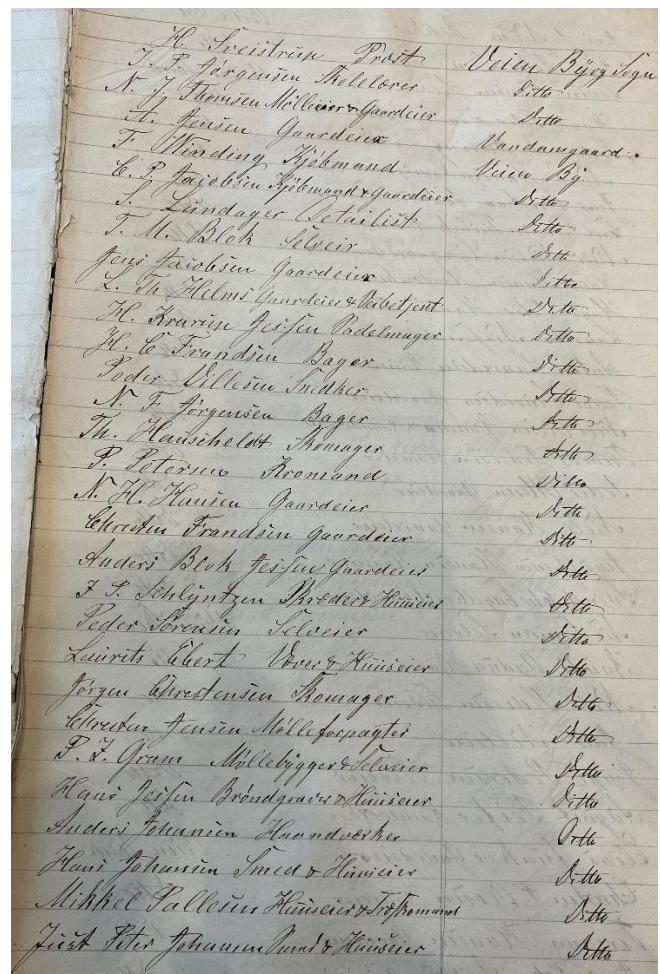 H. Sveistrup Prost Veien By og Sogn
J. P. Jørgensen Skolelærer Ditto
N. J. Thomsen Mølleier & Gaardeier Ditto
A. Jensen Gaardeier Vandamgaard.
F. Winding Kjøbmand Veien By
C. P. Jacobsen Kjøbmand & Gaardeier Ditto
S. Lundager Detailist Ditto
T. M. Blok Selveir Ditto
Jens Jacobsen Gaardeier Ditto
L. Th. Helms Gaardeier & Veibetjent Ditto
H. Krarup Jessen Sadelmager Ditto
H. C Frandsen Bager Ditto
Peder Villesen Snedker Ditto
N. F. Jørgensen Bager Ditto
Th. Hanscheldt Skomager Ditto
P. Petersen Kromand Ditto
N. H. Hansen Gaardeier Ditto
Chresten Frandsen Gaardeier Ditto
Anders Blok Jessen Gaardeier Ditto
J P. Schlyntzen Skræder & Huuseier Ditto
Peder Sørensen Selveier Ditto
Laurits Ebert Væver & Huuseier Ditto
Jørgen Chrestensen Skomager Ditto
Chresten Jensen Mølleforpagter Ditto
P. Z. Gram Møllebygger & Selveier Ditto
Hans Jessen Brøndgraver & Huuseier Ditto
Anders Johansen Haandværker Ditto
Hans Johansen Smed & Huuseier Ditto
Mikkel Pallesen Huuseier & Træskomand Ditto
Just Peter Johansen Smed & Huuseier Ditto